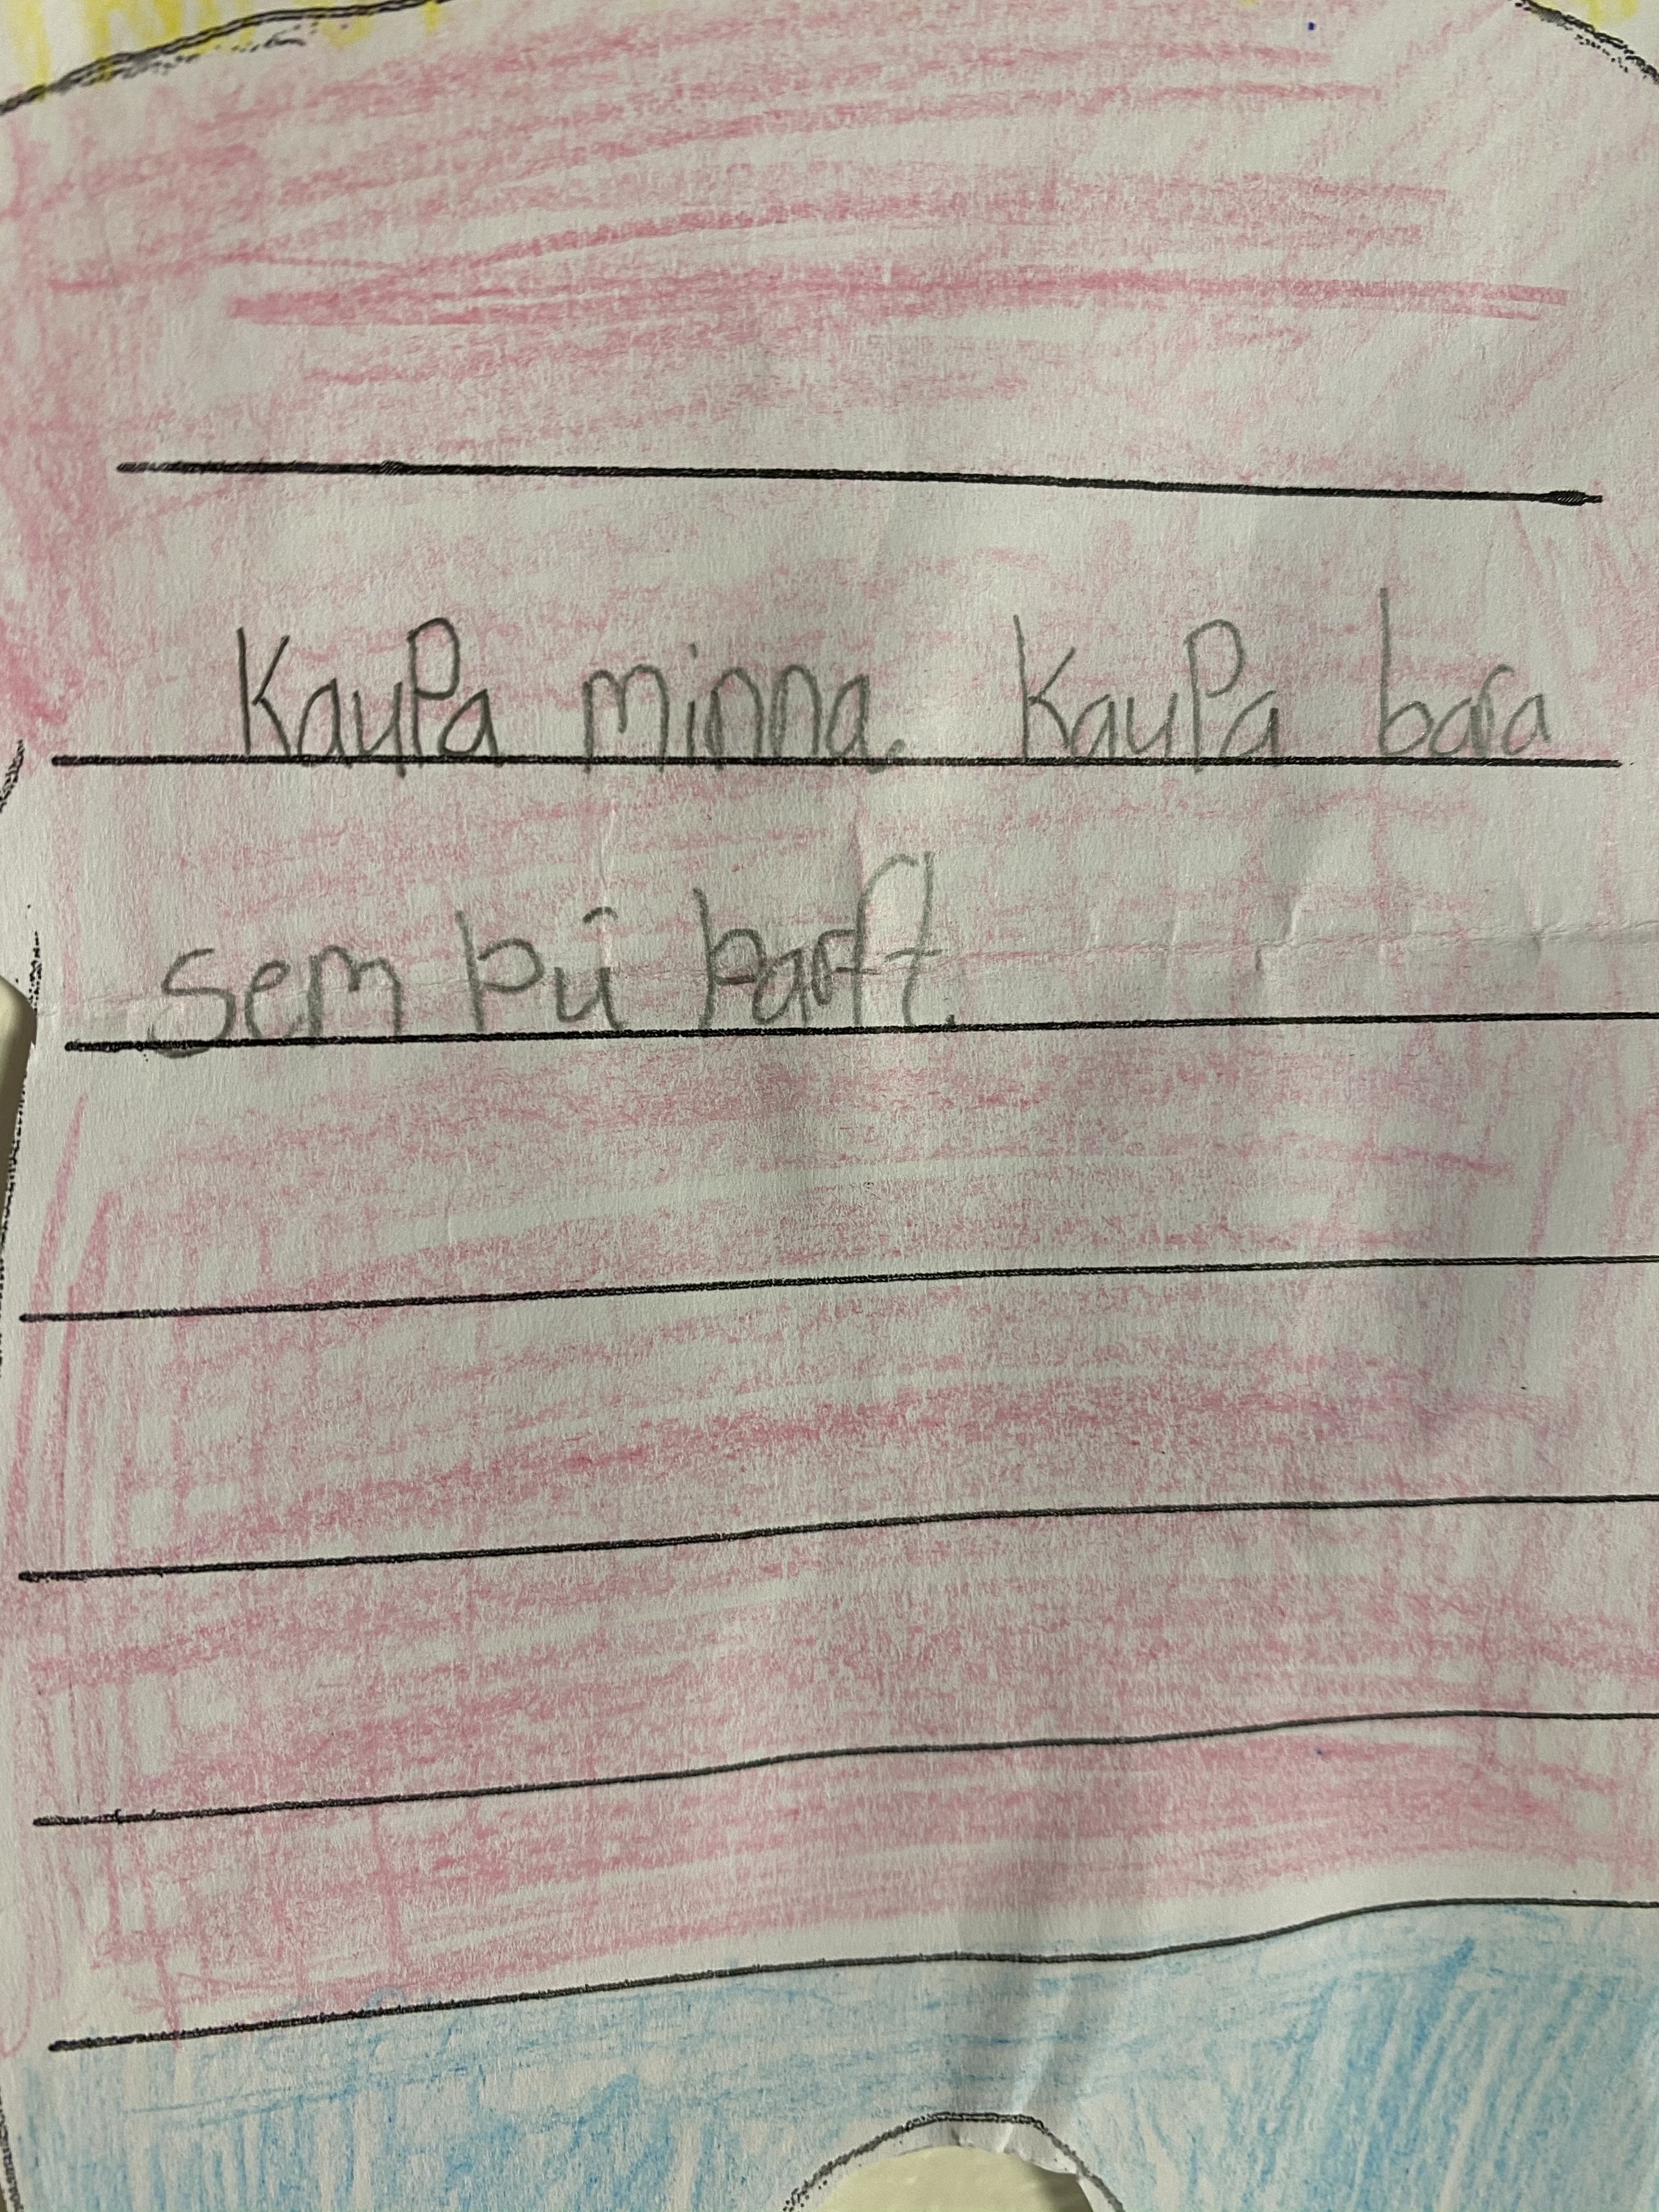 Kaupa minna. Kaupa bara
sem þú þarft.